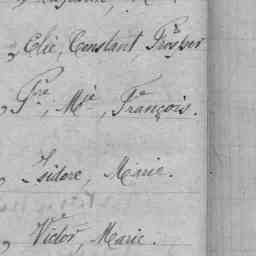 , Elie, Constant, Prosper
, Pre, Mie, François.
, Isidore, Marie.
, Victor, Marie.